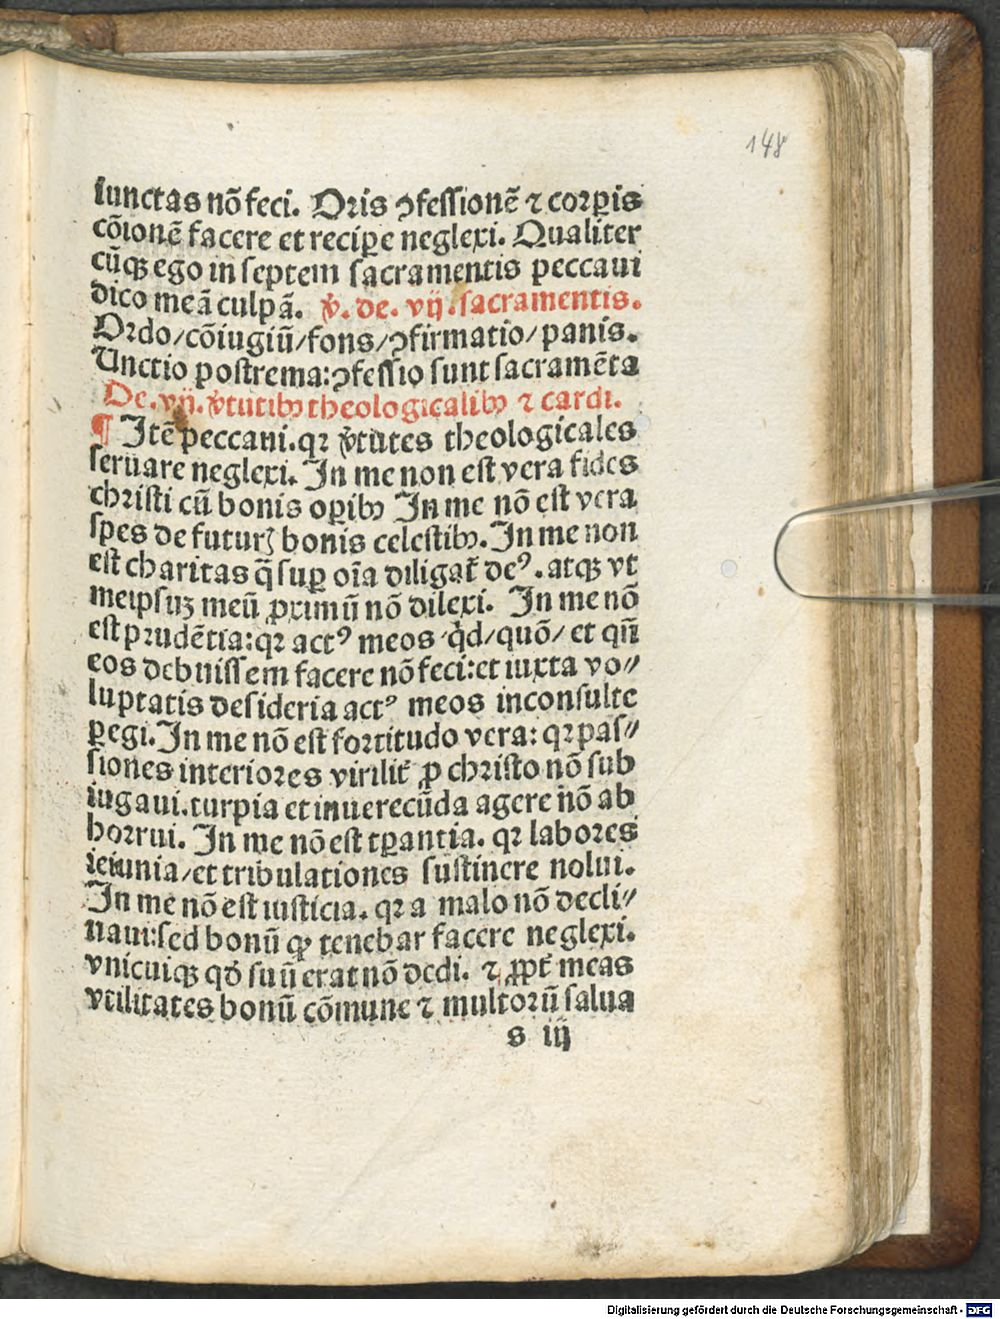 148
iunctas nō feci. Oris ꝯfessionē ⁊ corꝑis
cōionē facere et reciꝑe neglexi. Qualiter
cūqꝫ ego in septem sacramentis peccaui
dico meā culpā. v̉. de. vij. sacramentis.
Ordo/cōiugiū/fons/ꝯfirmatio/panis.
Unctio postrema:ꝯfessio sunt sacramēta
De. vij. v̉tutibꝰ theologicalibꝰ ⁊ cardi.
¶ Itē peccaui. qꝛ v̉tutes theologicales
seruare neglexi. In me non est vera fides
christi cū bonis oꝑibꝰ In me nō est vera
spes de futurꝝ bonis celestibꝰ. In me non
est charitas q̄ suꝑ oīa diligat̉ deꝰ. atqꝫ vt
meipsuꝫ meū ꝓximū nō dilexi. In me nō
est prudētia: qꝛ actꝰ meos qd̉/quō/et qn̄
eos debuissem facere nō feci: et iuxta vo⸗
luptatis desideria actꝰ meos inconsulte
ꝑegi. In me nō est fortitudo vera: qꝛ pas⸗
siones interiores virilit̉ ꝓ christo nō sub
iugaui. turpia et inuerecūda agere nō ab
horrui. In me nō est tꝑantia. qꝛ labores
ieiunia/et tribulationes sustinere nolui.
In me nō est iusticia. qꝛ a malo nō decli⸗
naui: sed bonū qꝫ tenebar facere neglexi.
vnicuiqꝫ qd̉ suū erat nō dedi. ⁊ ꝓpt̉ meas
vtilitates bonū cōmune ⁊ multorū salua
s iij
Digitalisierung gefördert durch die Deutsche Forschungsgemeinschaft - DFG